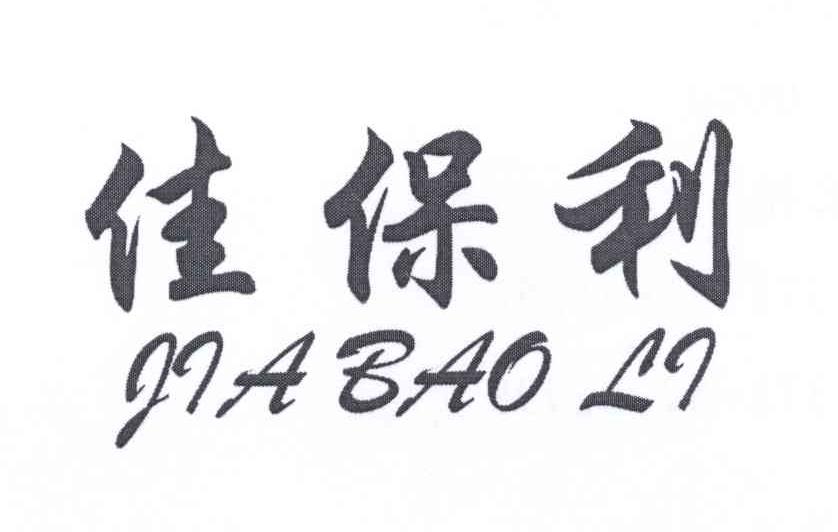 佳保利
JIA BAO LI